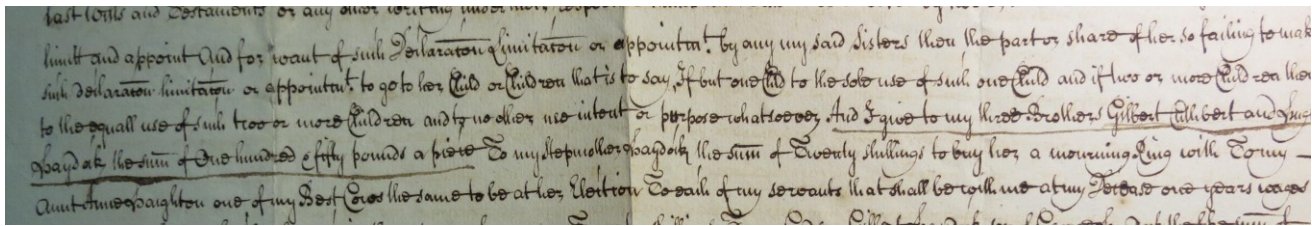 last Wills and Testaments or any other writing under
limitt and appoint And for want of such Declarac̄on Limitac̄on or appointmt. by any my said Sisters then the part or share of her so failing to make
such declarac̄on limitac̄on or appointmt. to go to her Child or Children that is to say, If but one Child to the sole use of such one Child and if two or more Children then
to the equall use of such two or more Children and to no other use intent or purpose whatsoever And I give to my three Brothers Gilbert Cuthbert and Hugh
Haydock the sum̄ of One hundred & fifty pounds a piece To my Stepmother Haydock the sum̄ of Twenty shillings to buy her a mourning Ring with To my
Aunt Anne Haighton one of my Best Cows the same to be at her Election To each of my servants that shall be with me at my Decease one years wages